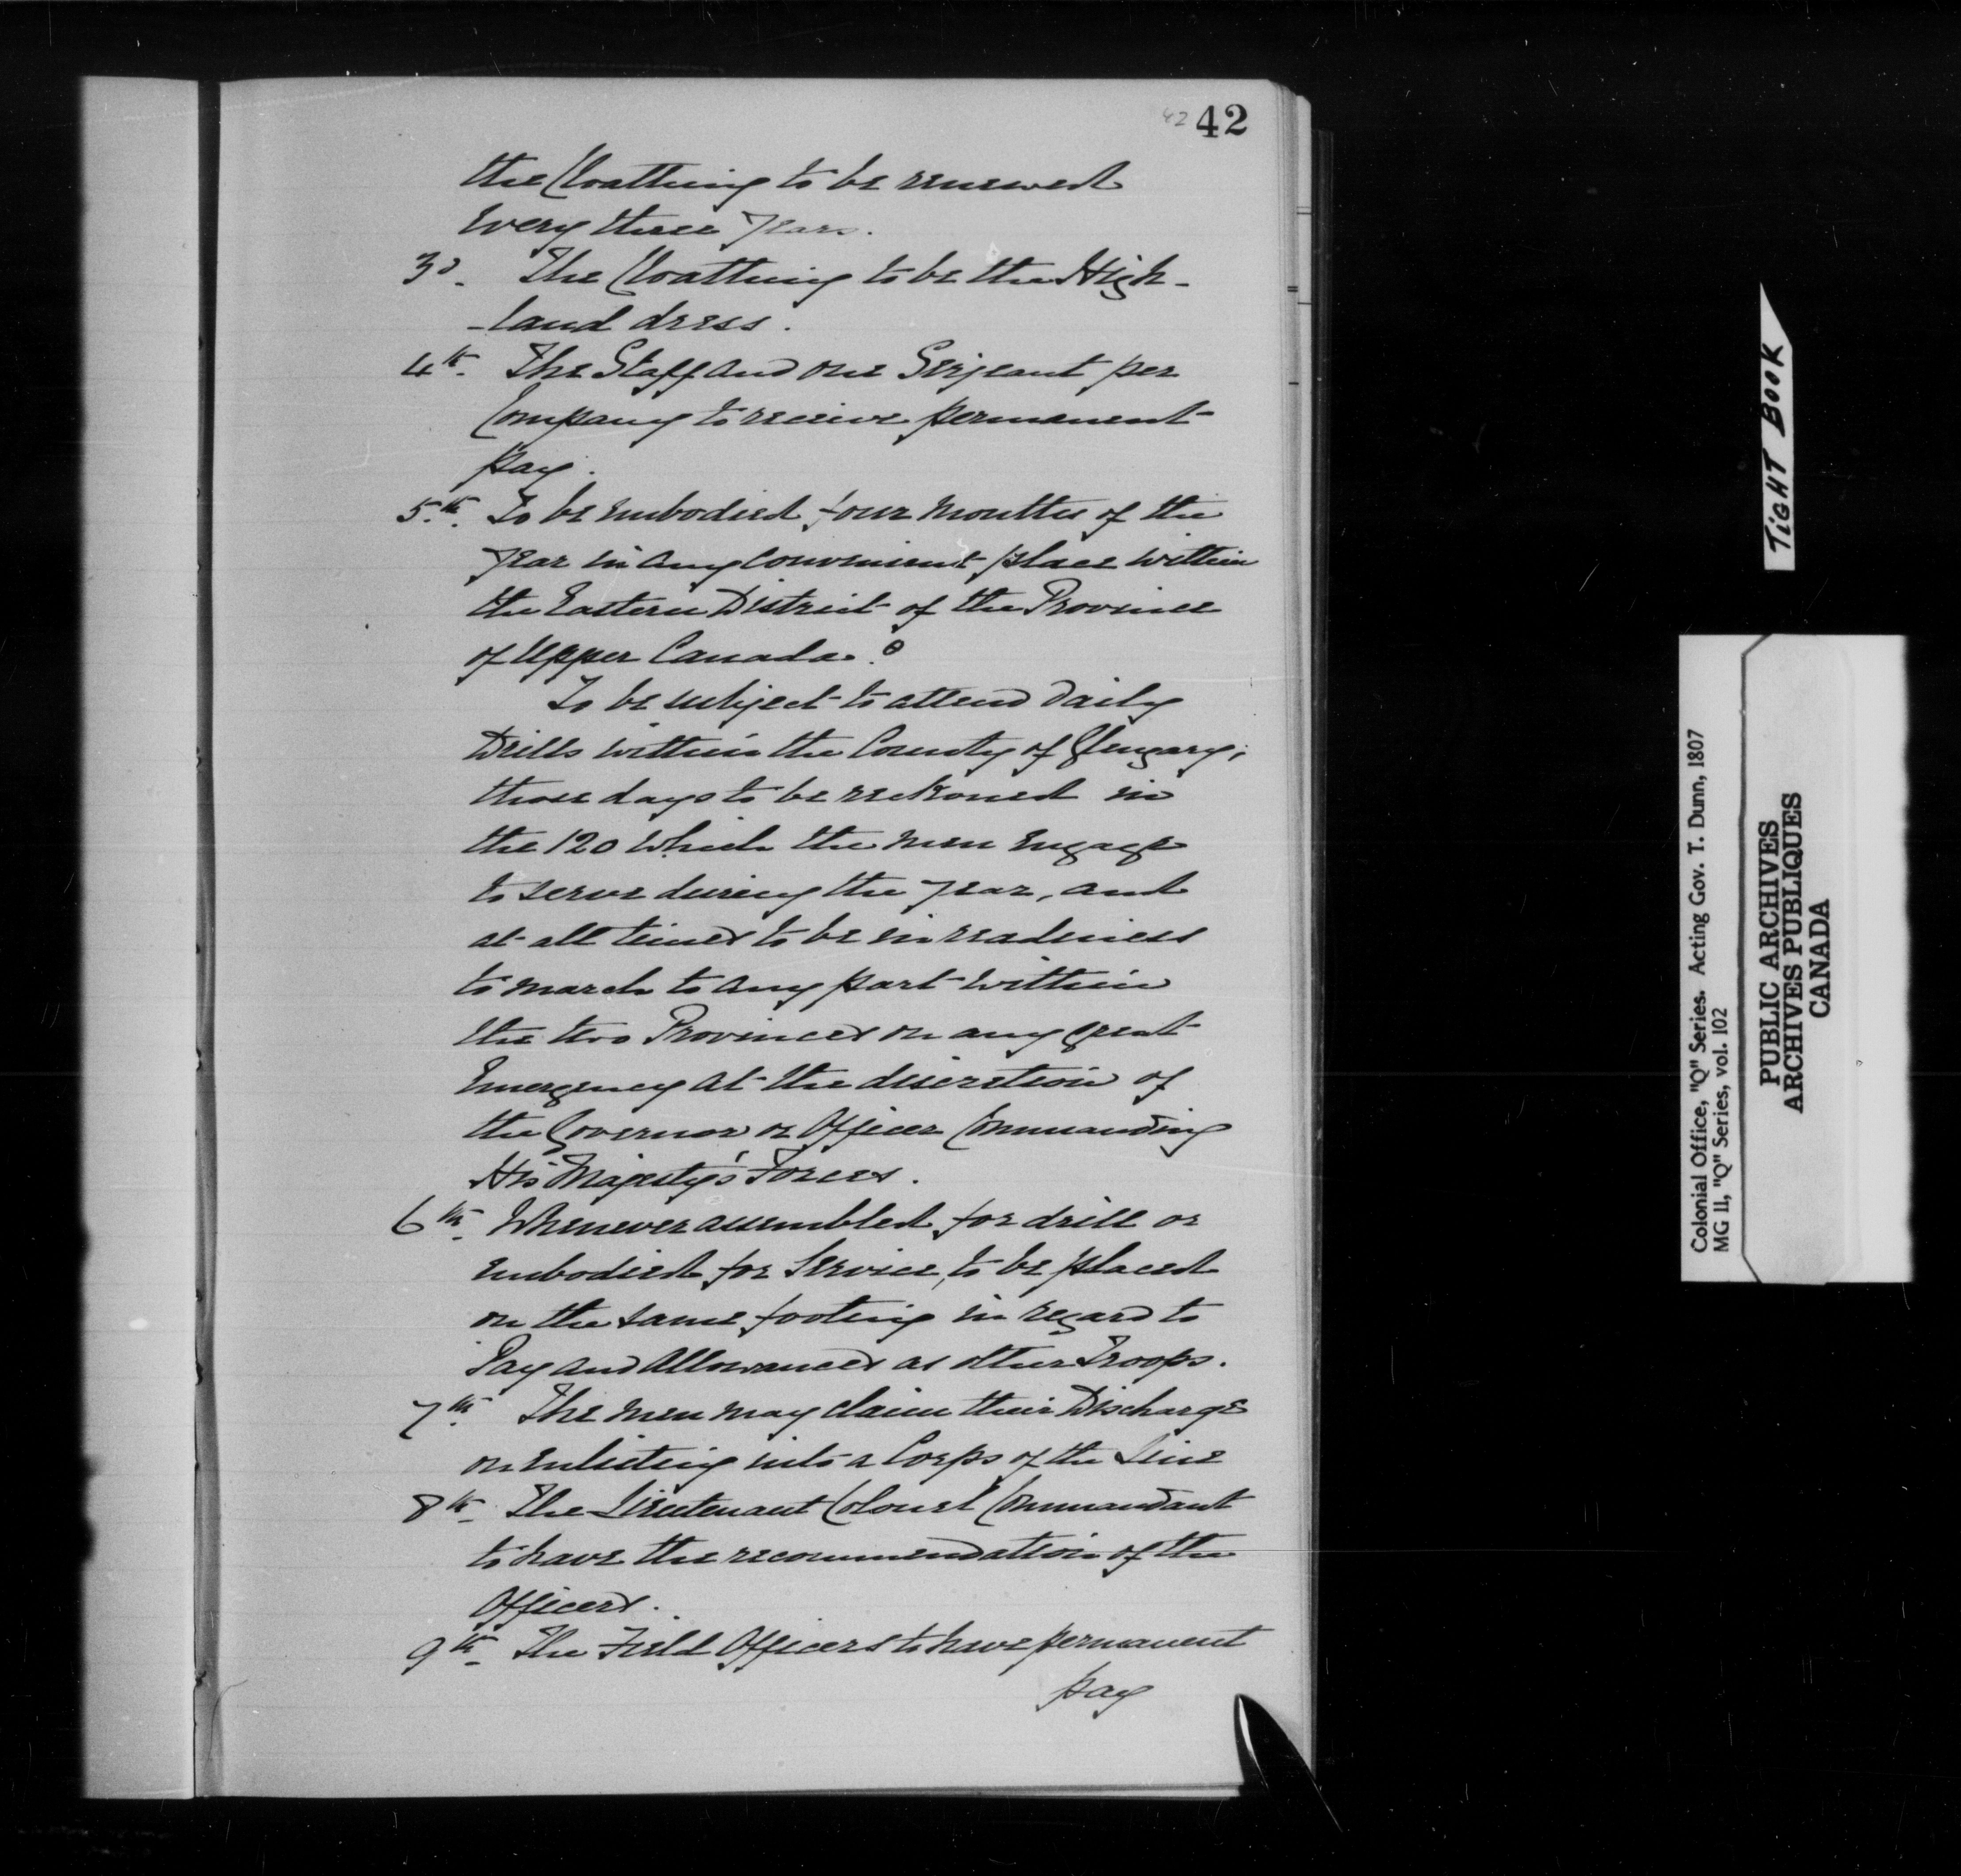 42 42
the Cloathing to be renewed
every three Years.
3d. The Cloathing to be the High-
-land dress.
4th. The Staff and one Serjeant per
Company to receive permanent
pay.
5th. To be embodied four months of the
year in any convenient place within
the Eastern District of the Province
of Upper Canada.
To be subject to attend daily
Drills within the County of Glengary;
those days to be reckoned in
the 120 which the men engage
to serve during the year, and
at all times to be in readiness
to march to any part within
the two Provinces on any great
Emergency at the discretion of
the Governor or Officer Commanding
His Majesty's Forces.
6th. Whenever assembled for drill or
embodied for Service, to be placed
on the same footing in regard to
Pay and Allowances as other Troops.
7th. The men may claim their Discharge
on enlisting into a Corps of the Line
8th. The Lieutenant Colonel Commandant
to have the recommendation of the
Officers.
9th. The Field Officers to have permanent
pay
TIGHT BOOK
Colonial Office, "Q" Series. Acting Gov. T. Dunn, 1807
MG 11, "Q" Series, vol. 102
PUBLIC ARCHIVES
ARCHIVES PUBLIQUES
CANADA